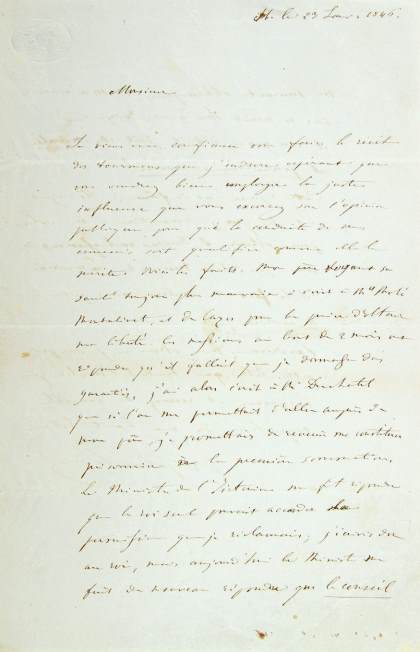 H. le 23 Janv. 1846.
Monsieur
Je viens avec confiance vous faire le récit
des tourmens que j'endure, espérant que
vous voudrez bien employer la juste
influence que vous exercez sur l'opinion
publique pour que la conduite de mes
ennemis soit qualifiée comme elle le
mérite. Voici les faits. Mon père voyant sa
santé toujours plus mauvaise, écrivit à MM. Molé
Montalivet, et de Cazes pour les prier d'obtenir
ma liberté. Ces messieurs au bout de 2 mois ont
répondu qu'il fallait que je donnasse des
garanties, j'ai alors écrit à Mr Duchatel
que si l'on me permettait d'aller auprès de
mon père, je promettais de revenir me constituer
prisonnier à la première sommation.
Le Ministre de l'Intérieur me fit répondre
que le roi seul pouvait accorder la
permission que je réclamais, j'écrivis donc
au roi, mais aujourd'hui le Ministre me
fait de nouveau répondre que le conseil